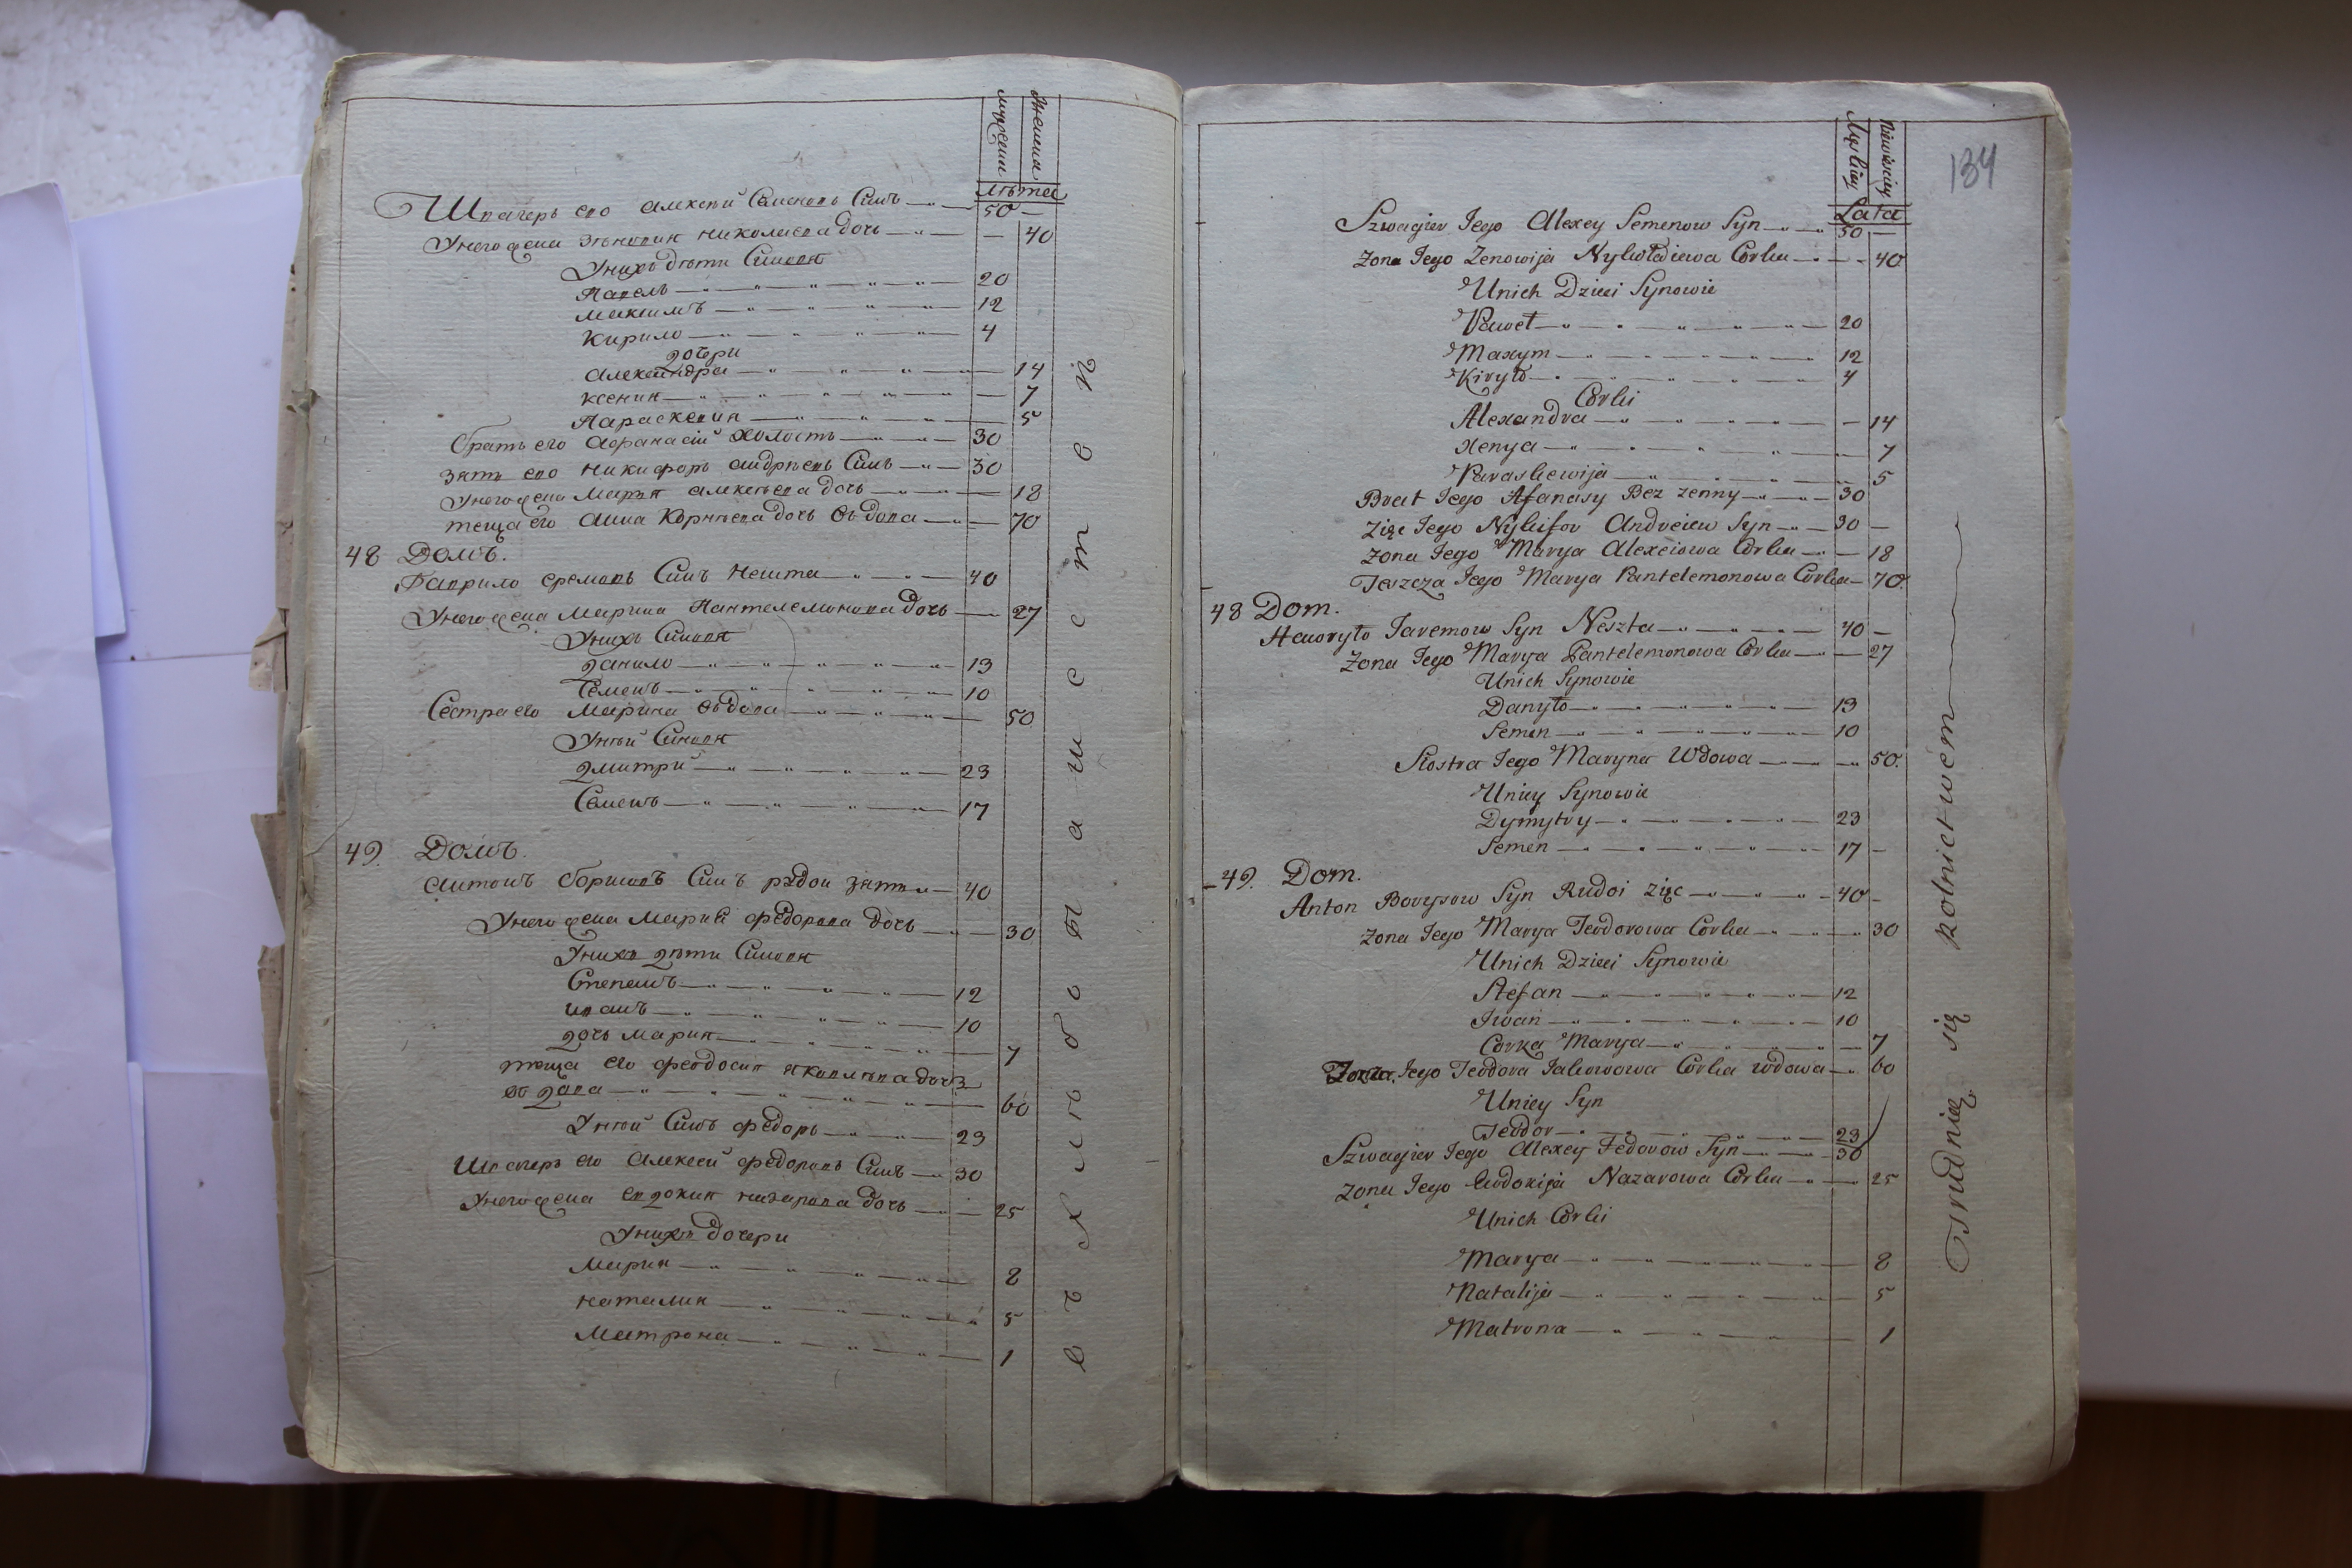 мужеска
женска
лѣта
Швагеръ его Алексѣй Семеновъ Синъ 50 —
Унего жена Зѣновия Николаева дочь — 40
Унихъ дѣти Синовя
Павелъ 20
Максимъ 12
Кирило 4
дочери
Александра — 14
Ксения — 7
Параскевия 5
братъ его Афанасій холостъ 30
зять его Никифоръ Андрѣевъ Синъ 30
Унего жена Мария Алексѣева дочь — 18
теща его Анна Корнѣева дочь вдова — 70
48 Домъ.
Гаврило Яремовъ Синъ Нешта 40
Унего жена Марина Пантелемонова дочь 27
Унихъ Синовя
Данило 13
Семенъ 10
Сестра его Марина вдова 50
Унѣй Синовя
Дмитрй 23
Семенъ 17
49. Домъ.
Антонъ Борисовъ Синъ рудои зять 40
Унего жена Мария Федорова дочь 30
Унихъ дѣти Синовя
Степанъ 12
Иванъ 10
дочь Мария 7
теща его Феодосия Яковлѣва дочь
вдова 60
Унѣй Синъ Федоръ 23
Швагеръ его Алексей Федоровъ Синъ 30
Унего жена Евдокия Назарова дочь 25
Унихъ дочери
Мария 8
Наталия 5
Матрона 1
134
Męskiey
Niewieściey
Lata
Szwagier Jego Alexey Semenow Syn 50 —
Zona Jego Zenowija Corka — 40
Unich Dzieci Synowie
Paweł 20
Maxym 12
Kiryło 4
Corki
Alexandra — 14
Xenya 7
Paraskewija 5
Brat Jego Afanasy Bez zenny 30
Zięc Jego Nykifor Andreiew Syn 30 —
Zona Jego Marya Alexeiowa Corka — 18
Teszcza Jego Marya Pantelemonowa Corka — 70.
48 Dom.
Hawryło Jaremow Syn Neszta 40 —
Zona Jego Marya Pantelemonowa Corka — 27
Unich Synowie
Danyło 13
Semen 10
Siostra Jego Maryna Wdowa 50.
Uniey Synowie
Dymytry 23
Semen 17 —
49. Dom.
Anton Borysow Syn Rudoi zięc 40 —
Zona Jego Marya Teodorowa Corka 30
Unich Dzieci Synowie
Stefan 12
Iwan 10
Corka Marya 7
Jego Teodora Jakowowa Corka wdowa 60
Uniey Syn
Teodor 23
Szwagier Jego Alexey Fedorow Syn 30
Zona Jego Eudokija Nazarowa Corka 25
Unich Corki
Marya 8
Natalija 5
Matrona 1
Trudnią się Rolnictwem